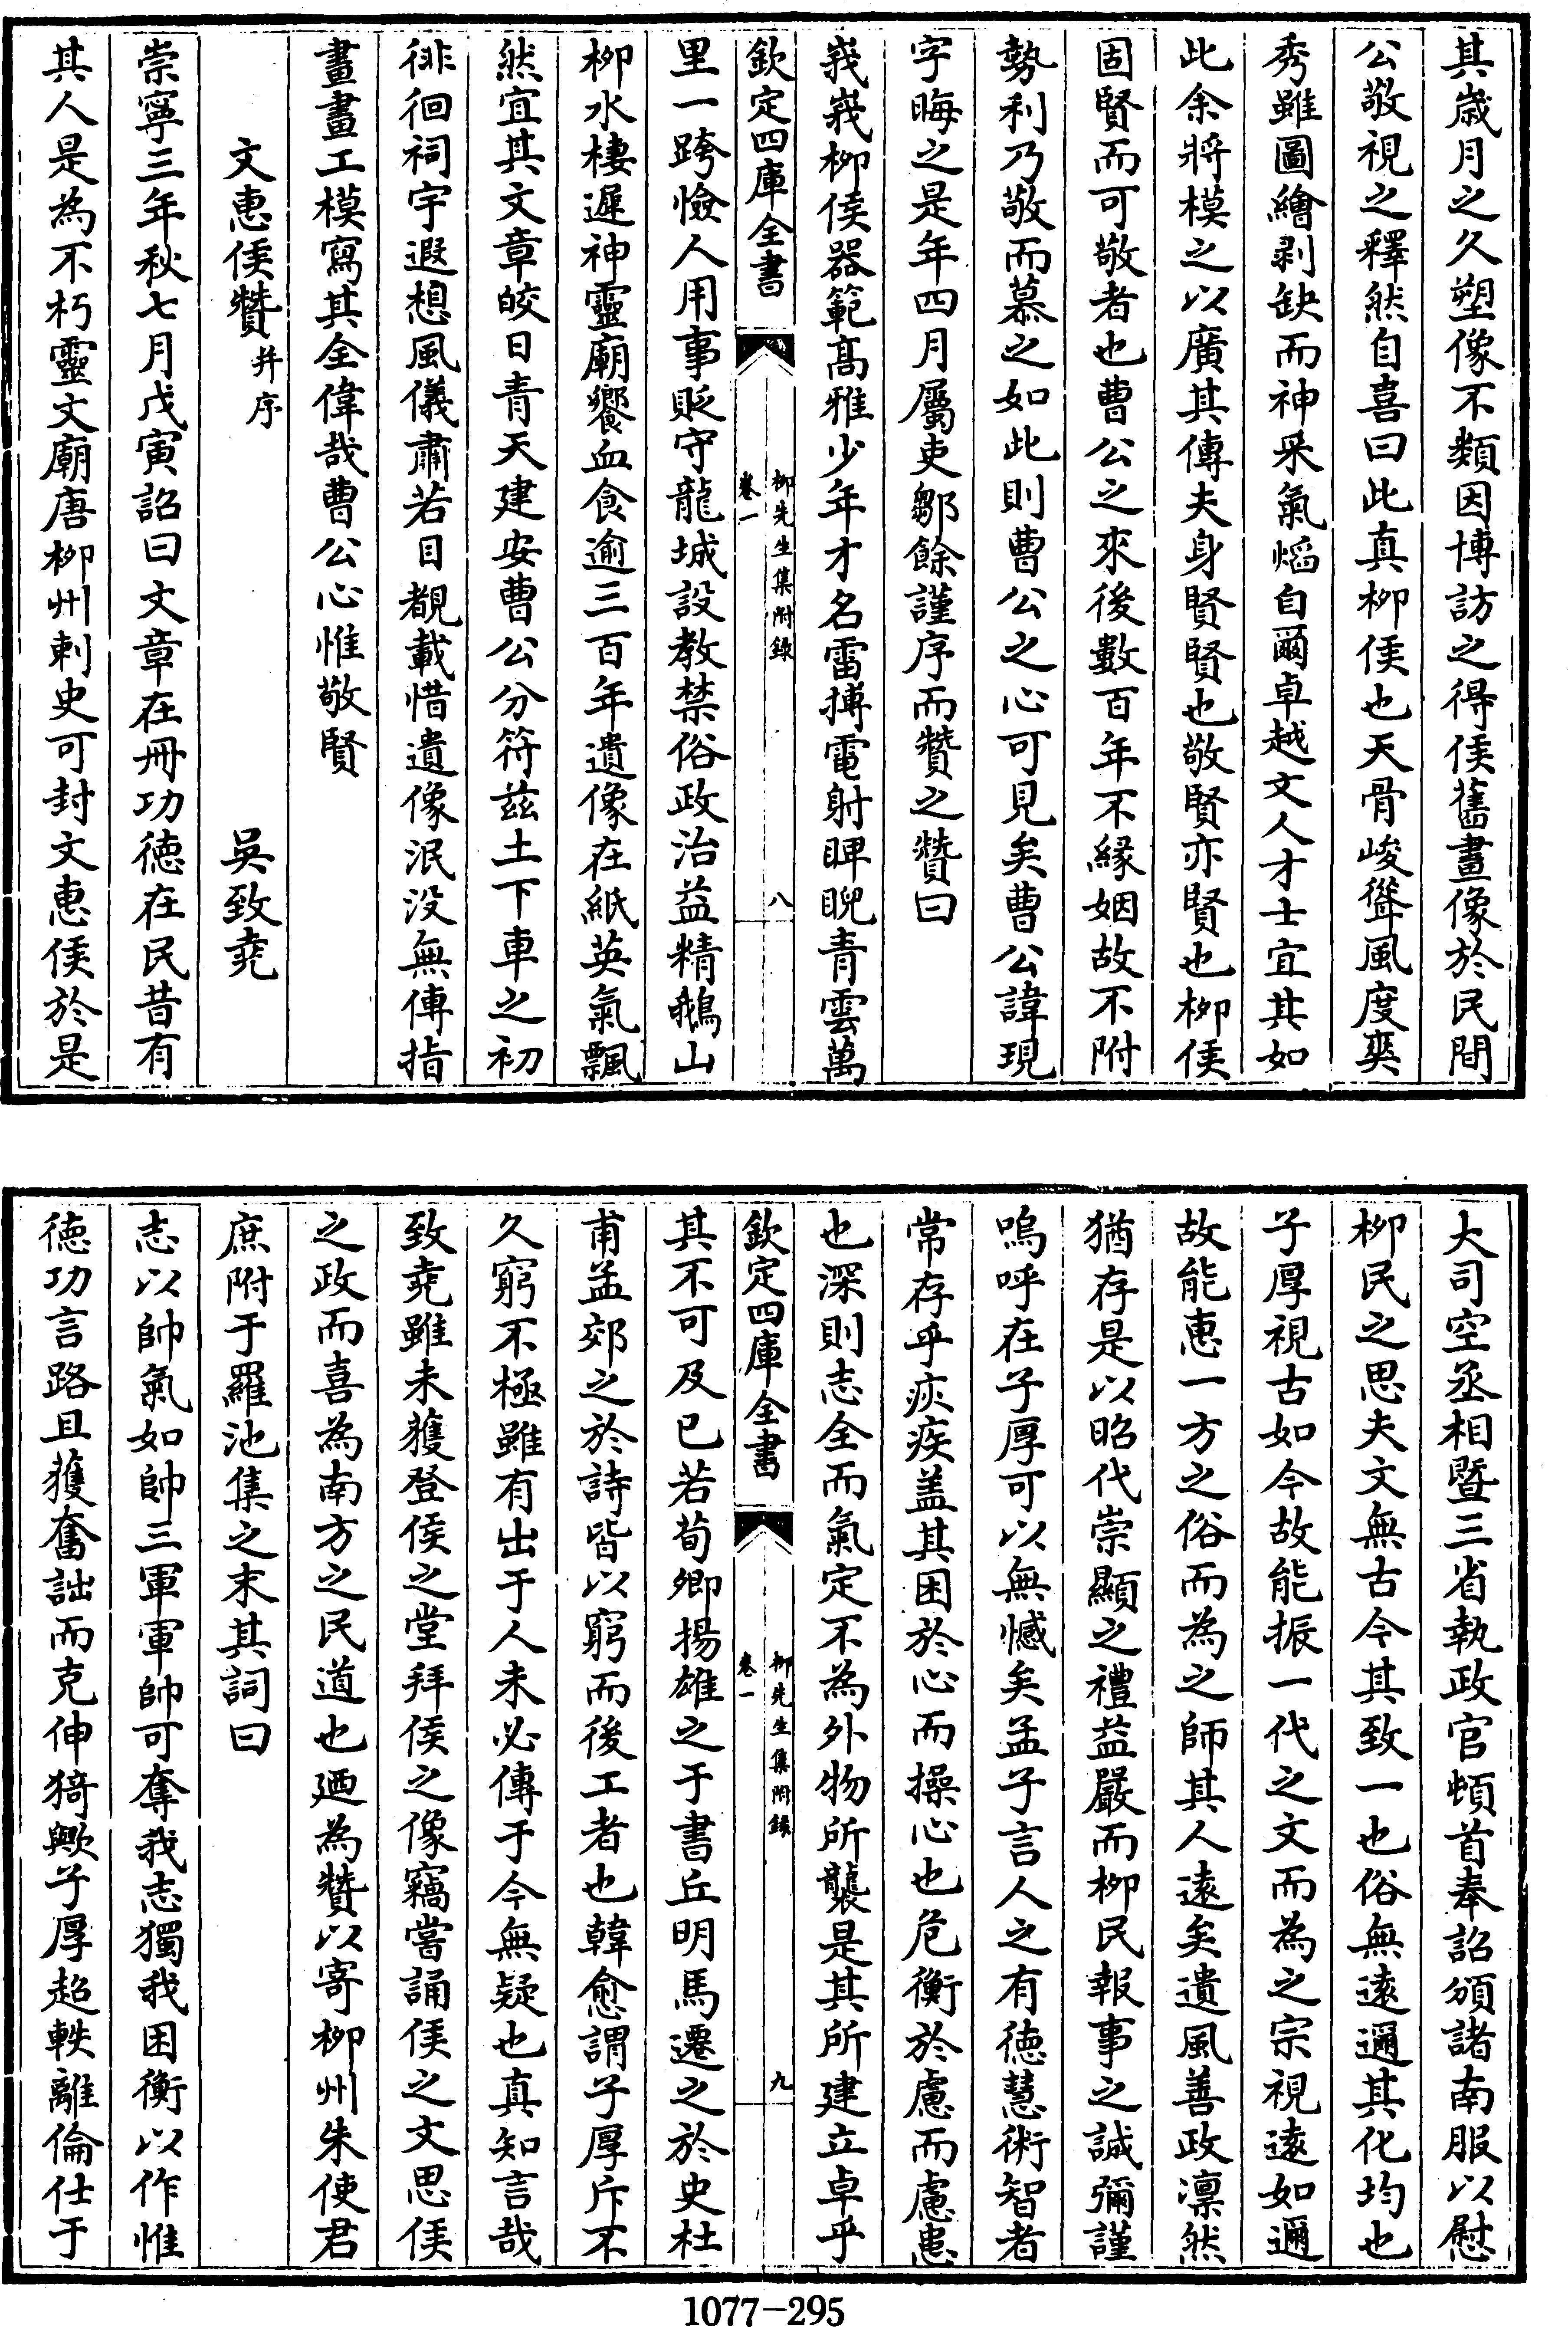 其歳月之久塑像不類因博訪之得侯舊畫像於民間
公敬視之釋然自喜曰此真柳侯也天骨峻聳風度奕
秀雖圖繪剥缺而神采氣熖自爾卓越文人才士宜其如
此余將模之以廣其傳夫身賢賢也敬賢亦賢也柳侯
固賢而可敬者也曹公之來後數百年不緣姻故不附
勢利乃敬而慕之如此則曹公之心可見矣曹公諱現
字晦之是年四月屬吏鄒餘謹序而贊之贊曰
峩峩柳侯器範髙雅少年才名雷搏電射睥睨青雲萬
欽定四庫全書
柳先生集附録
卷一
八
里一跨憸人用事貶守龍城設教禁俗政治益精鵝山
柳水棲遲神靈廟饗血食逾三百年遺像在紙英氣飄
然宜其文章皎日青天建安曹公分符兹土下車之初
徘徊祠宇遐想風儀肅若目覩載惜遺像泯没無傳指
畫畫工模寫其全偉哉曹公心惟敬賢
文惠侯贊并序
吳致堯
崇寧三年秋七月戊寅詔曰文章在冊功徳在民昔有
其人是為不朽靈文廟唐柳州刺史可封文惠侯於是
大司空丞相暨三省執政官頓首奉詔頒諸南服以慰
柳民之思夫文無古今其致一也俗無逺邇其化均也
子厚視古如今故能振一代之文而為之宗視逺如邇
故能惠一方之俗而為之師其人逺矣遺風善政凛然
猶存是以昭代崇顯之禮益嚴而柳民報事之誠彌謹
嗚呼在子厚可以無憾矣孟子言人之有徳慧術智者
常存乎疢疾盖其困於心而操心也危衡於慮而慮患
也深則志全而氣定不為外物所襲是其所建立卓乎
欽定四庫全書
柳先生集附録
卷一
九
其不可及已若荀卿揚雄之于書丘明馬遷之於史杜
甫孟郊之於詩皆以窮而後工者也韓愈謂子厚斥不
久窮不極雖有出于人未必傳于今無疑也真知言哉
致堯雖未獲登侯之堂拜侯之像竊嘗誦侯之文思侯
之政而喜為南方之民道也廼為贊以寄柳州朱使君
庶附于羅池集之末其詞曰
志以帥氣如帥三軍軍帥可奪我志獨我困衡以作惟
徳功言路且獲奮詘而克伸猗歟子厚超軼離倫仕于
1077-295